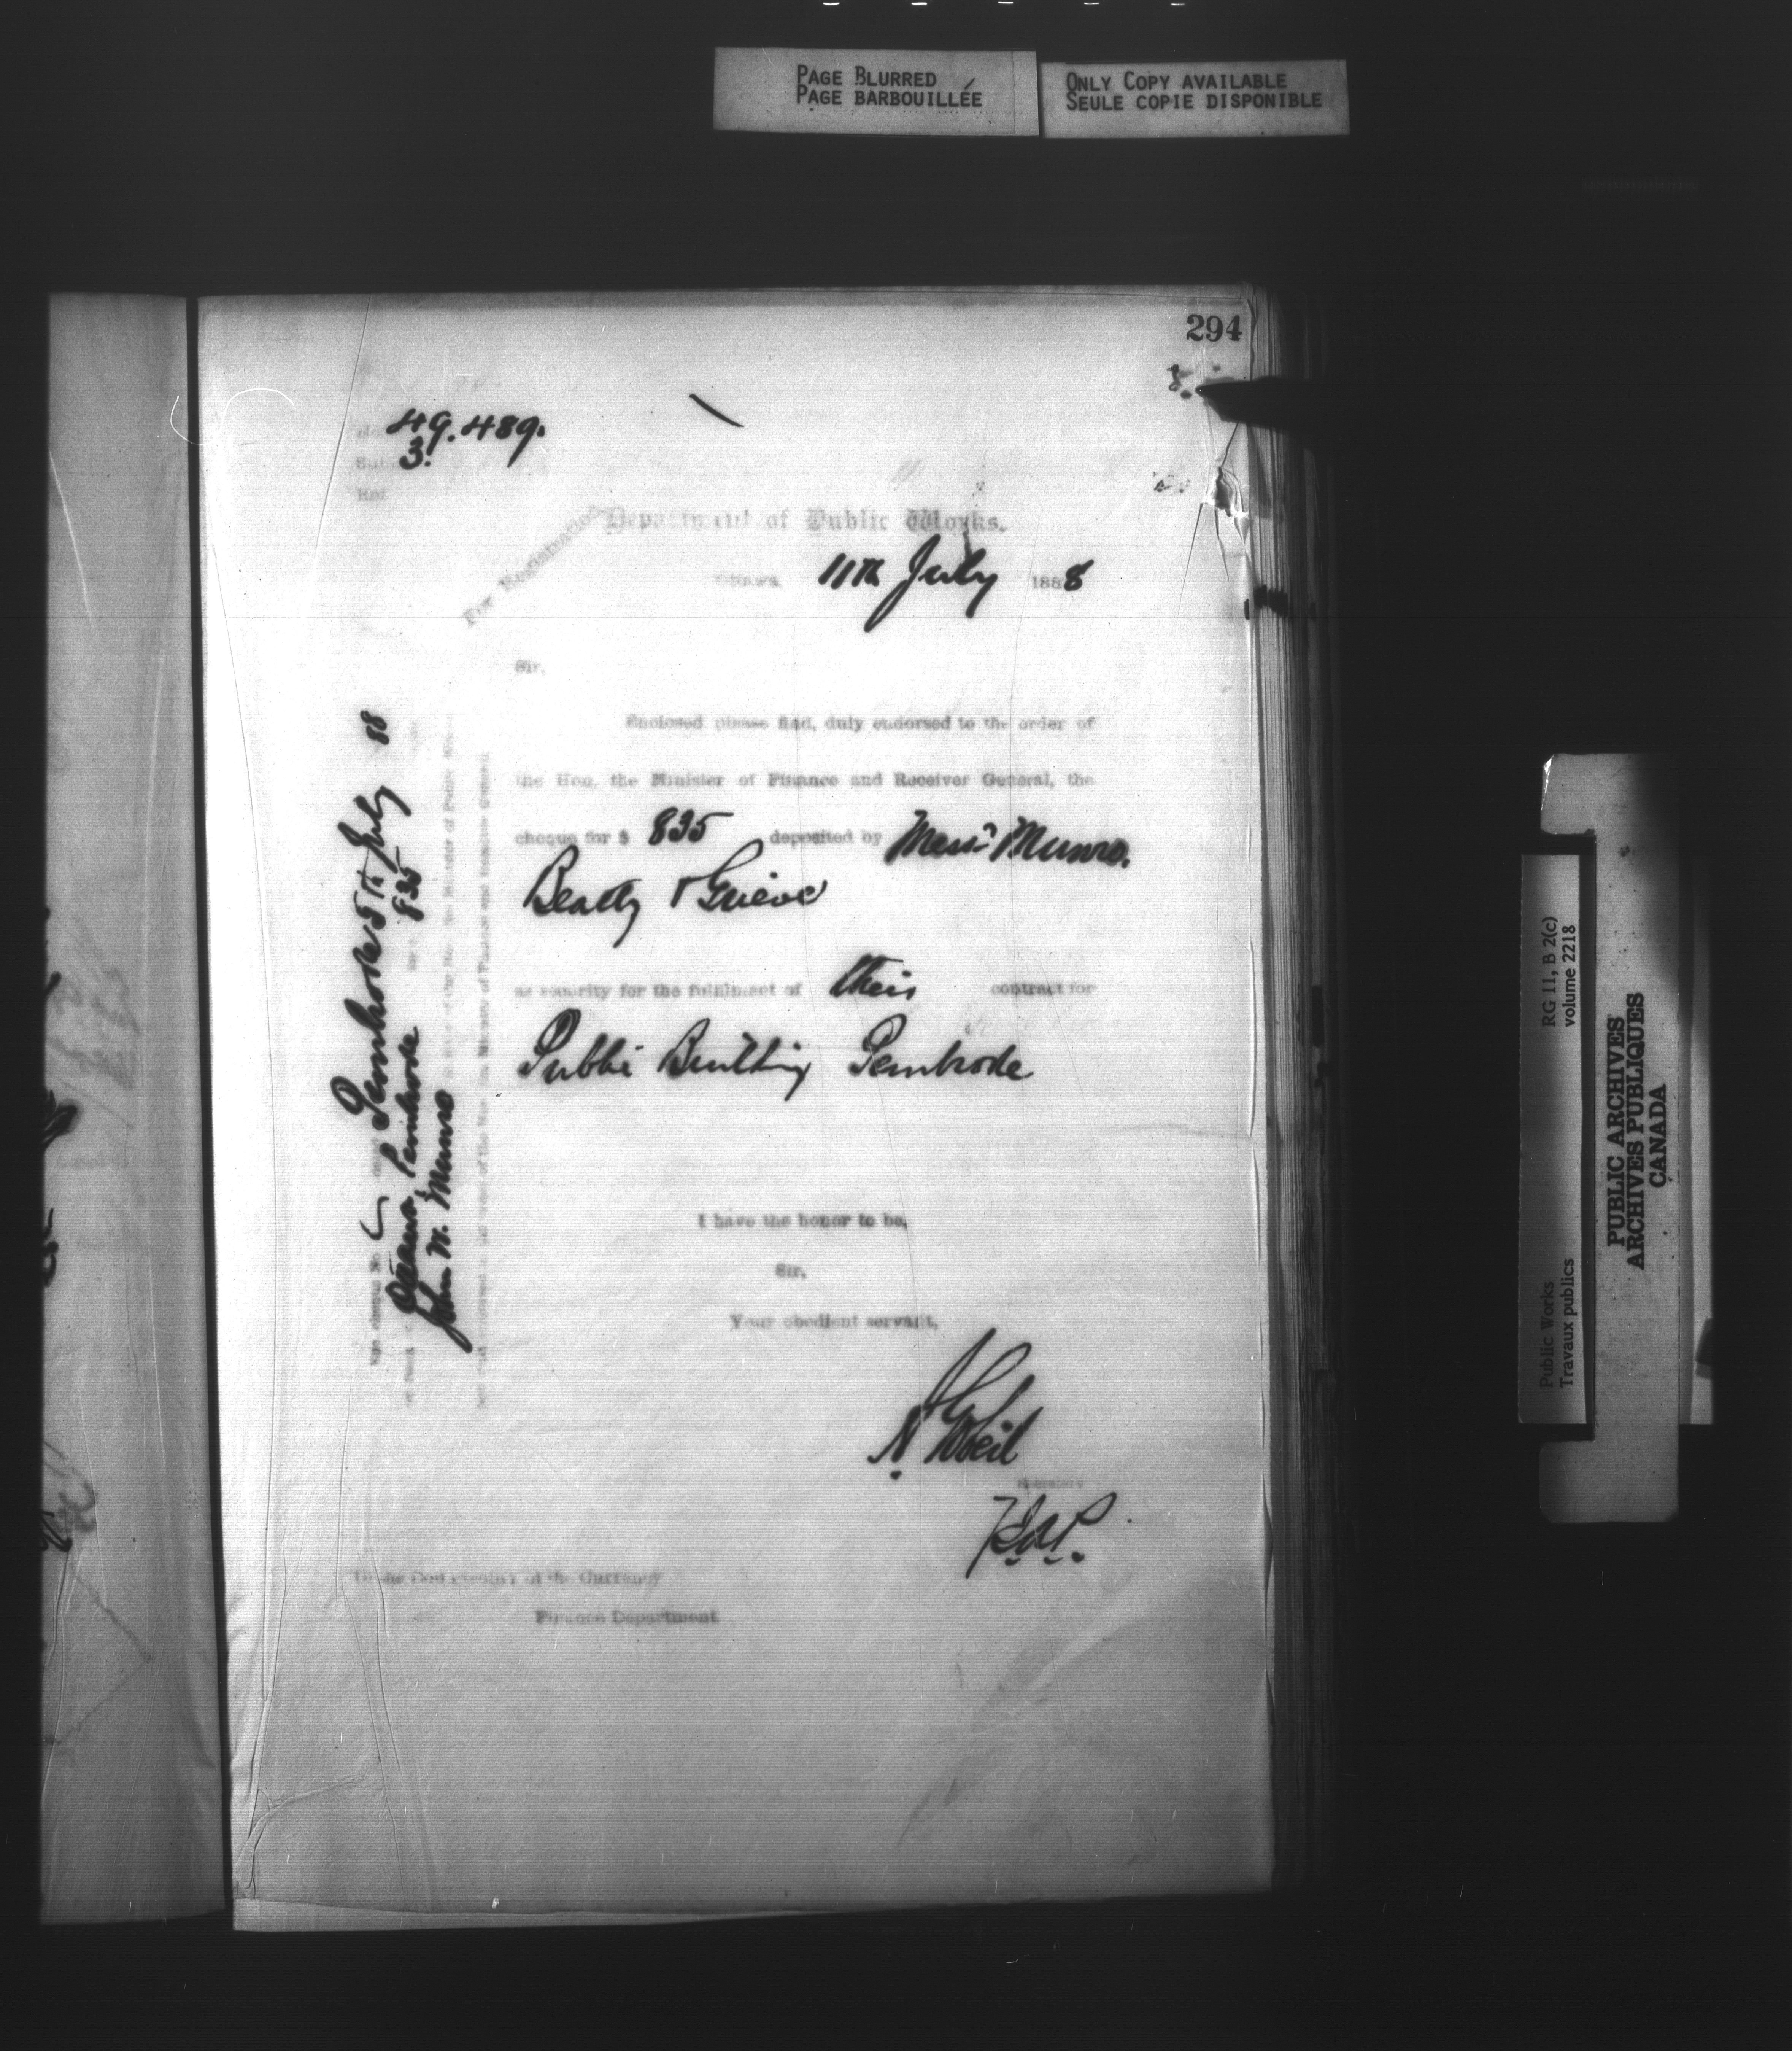 PAGE BLURRED
PAGE BARBOUILLÉE
ONLY COPY AVAILABLE
SEULE COPIE DISPONIBLE
294
No 49.489.
Sub 3.
Ref
For Registration
Department of Public Works.
Ottawa 11th July 1888
Sir,
Enclosed, please find, duly endorsed to the order of
the Hon. the Minister of Finance and Receiver General, the
cheque for $ 835 deposited by Messrs Munro,
Beatty & Grieve
as security for the fulfilment of their contract for
Public Building Pembroke
I have the honor to be,
Sir,
Your obedient servant,
Secretary
To the
of the Currency
Finance Department
cheque No
Pembroke 5th July 88
Ottawa, Pembroke
835
John W. Munro
the Minister of Public
of the Hon. the Minister of Finance and Receiver General
Public Works
Travaux publics
RG 11, B 2(c)
volume 2218
PUBLIC ARCHIVES
ARCHIVES PUBLIQUES
CANADA